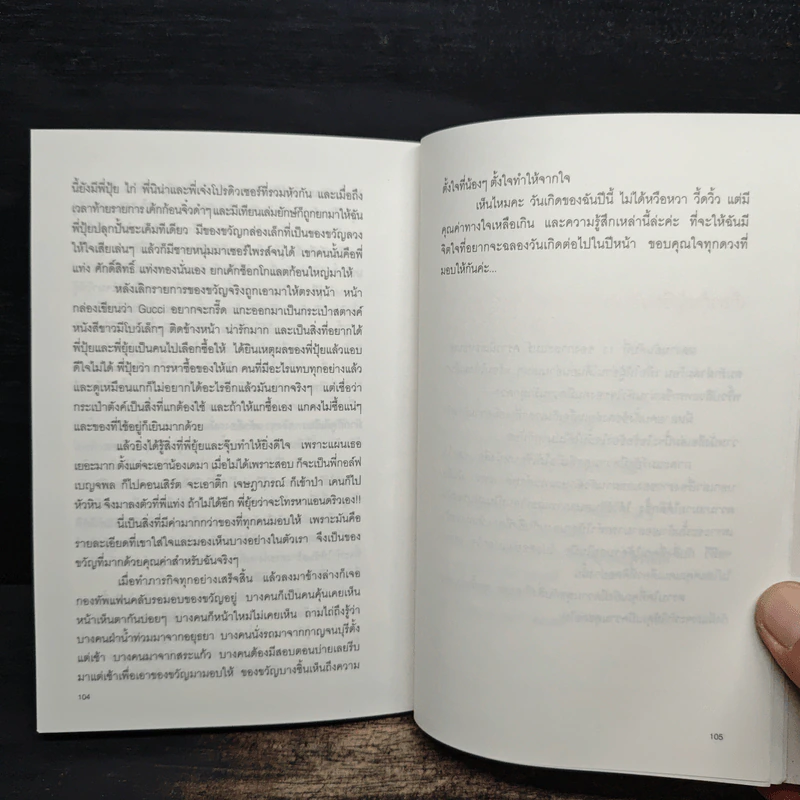 นี้ยังมีพี่ปุ้ย ไก่ พี่นิน่าและพี่เจ๋งโปรดิวเซอร์ที่รวมหัวกัน และเมื่อถึง
เวลาท้ายรายการ เค้กก้อนจิ๋วดำๆ และมีเทียนเล่มยักษ์ก็ถูกยกมาให้ฉัน
พี่ปุ้ยปลุกปั้นซะเต็มที่เดียว มีของขวัญกล่องเล็กที่เป็นของขวัญลวง
ให้ไว้เสียเล่นๆ แล้วก็มีชายหนุ่มมาเซอร์ไพรส์จนได้ เขาคนนั้นคือพี่
แท่ง ศักดิ์สิทธิ์ แท่งทองนั่นเอง ยกเค้กช็อกโกแลตก้อนใหญ่มาให้
หลังเลิกรายการของขวัญจริงถูกเอามาให้ตรงหน้า หน้า
กล่องเขียนว่า Gucci อยากจะกรี๊ด แกะออกมาเป็นกระเป๋าสตางค์
หนังสีขาวมีโบว์เล็กๆ ติดข้างหน้า น่ารักมาก และเป็นสิ่งที่อยากได้
พี่ปุ้ยและพี่ยุ้ยเป็นคนไปเลือกซื้อให้ ได้ยินเหตุผลของพี่ปุ้ยแล้วแอบ
ดีใจไม่ได้ พี่ปุ้ยว่า การหาซื้อของให้แก คนที่มีอะไรแทบทุกอย่างแล้ว
และดูเหมือนแกก็ไม่อยากได้อะไรอีกแล้วมันยากจริงๆ แต่เชื่อว่า
กระเป๋าตังค์เป็นสิ่งที่แกต้องใช้ และถ้าให้แกซื้อเอง แกคงไม่ซื้อแน่ๆ
และของที่ใช้อยู่ก็เยินมากด้วย
แล้วยิ่งได้รู้สิ่งที่พี่ยุ้ยและจุ๊บทำให้ยิ่งดีใจ เพราะแผนเธอ
เยอะมาก ตั้งแต่จะเอาน้องเดมา เมื่อไม่ได้เพราะสอบ ก็จะเป็นพี่กอล์ฟ
เบญจพล ก็ไปคอนเสิร์ต จะเอาติ๊ก เจษฎาภรณ์ ก็เข้าป่า เคนก็ไป
หัวหิน จึงมาลงตัวที่พี่แท่ง ถ้าไม่ได้อีก พี่ยุ้ยว่าจะโทรหาแอนดริวเอง!!
นี่เป็นสิ่งที่มีค่ามากกว่าของที่ทุกคนมอบให้ เพราะมันคือ
รายละเอียดที่เขาใส่ใจและมองเห็นบางอย่างในตัวเรา จึงเป็นของ
ขวัญที่มากด้วยคุณค่าสำหรับฉันจริงๆ
เมื่อทำภารกิจทุกอย่างเสร็จสิ้น แล้วลงมาข้างล่างก็เจอ
กองทัพแฟนคลับรอมอบของขวัญอยู่ บางคนก็เป็นคนคุ้นเคยเห็น
หน้าเห็นตากันบ่อยๆ บางคนก็หน้าใหม่ไม่เคยเห็น ถามไถ่ถึงรู้ว่า
บางคนฝ่าน้ำท่วมมาจากอยุธยา บางคนนั่งรถมาจากกาญจนบุรีตั้ง
แต่เช้า บางคนมาจากสระแก้ว บางคนต้องมีสอบตอนบ่ายเลยรีบ
มาแต่เช้าเพื่อเอาของขวัญมามอบให้ ของขวัญบางชิ้นเห็นถึงความ
104
ตั้งใจที่น้องๆ ตั้งใจทำให้จากใจ
เห็นไหมคะ วันเกิดของฉันปีนี้ ไม่ได้หวือหวา วี้ดวิ้ว แต่มี
คุณค่าทางใจเหลือเกิน และความรู้สึกเหล่านี้ล่ะค่ะ ที่จะให้ฉันมี
จิตใจที่อยากจะฉลองวันเกิดต่อไปในปีหน้า ขอบคุณใจทุกดวงที่
มอบให้กันค่ะ...
105